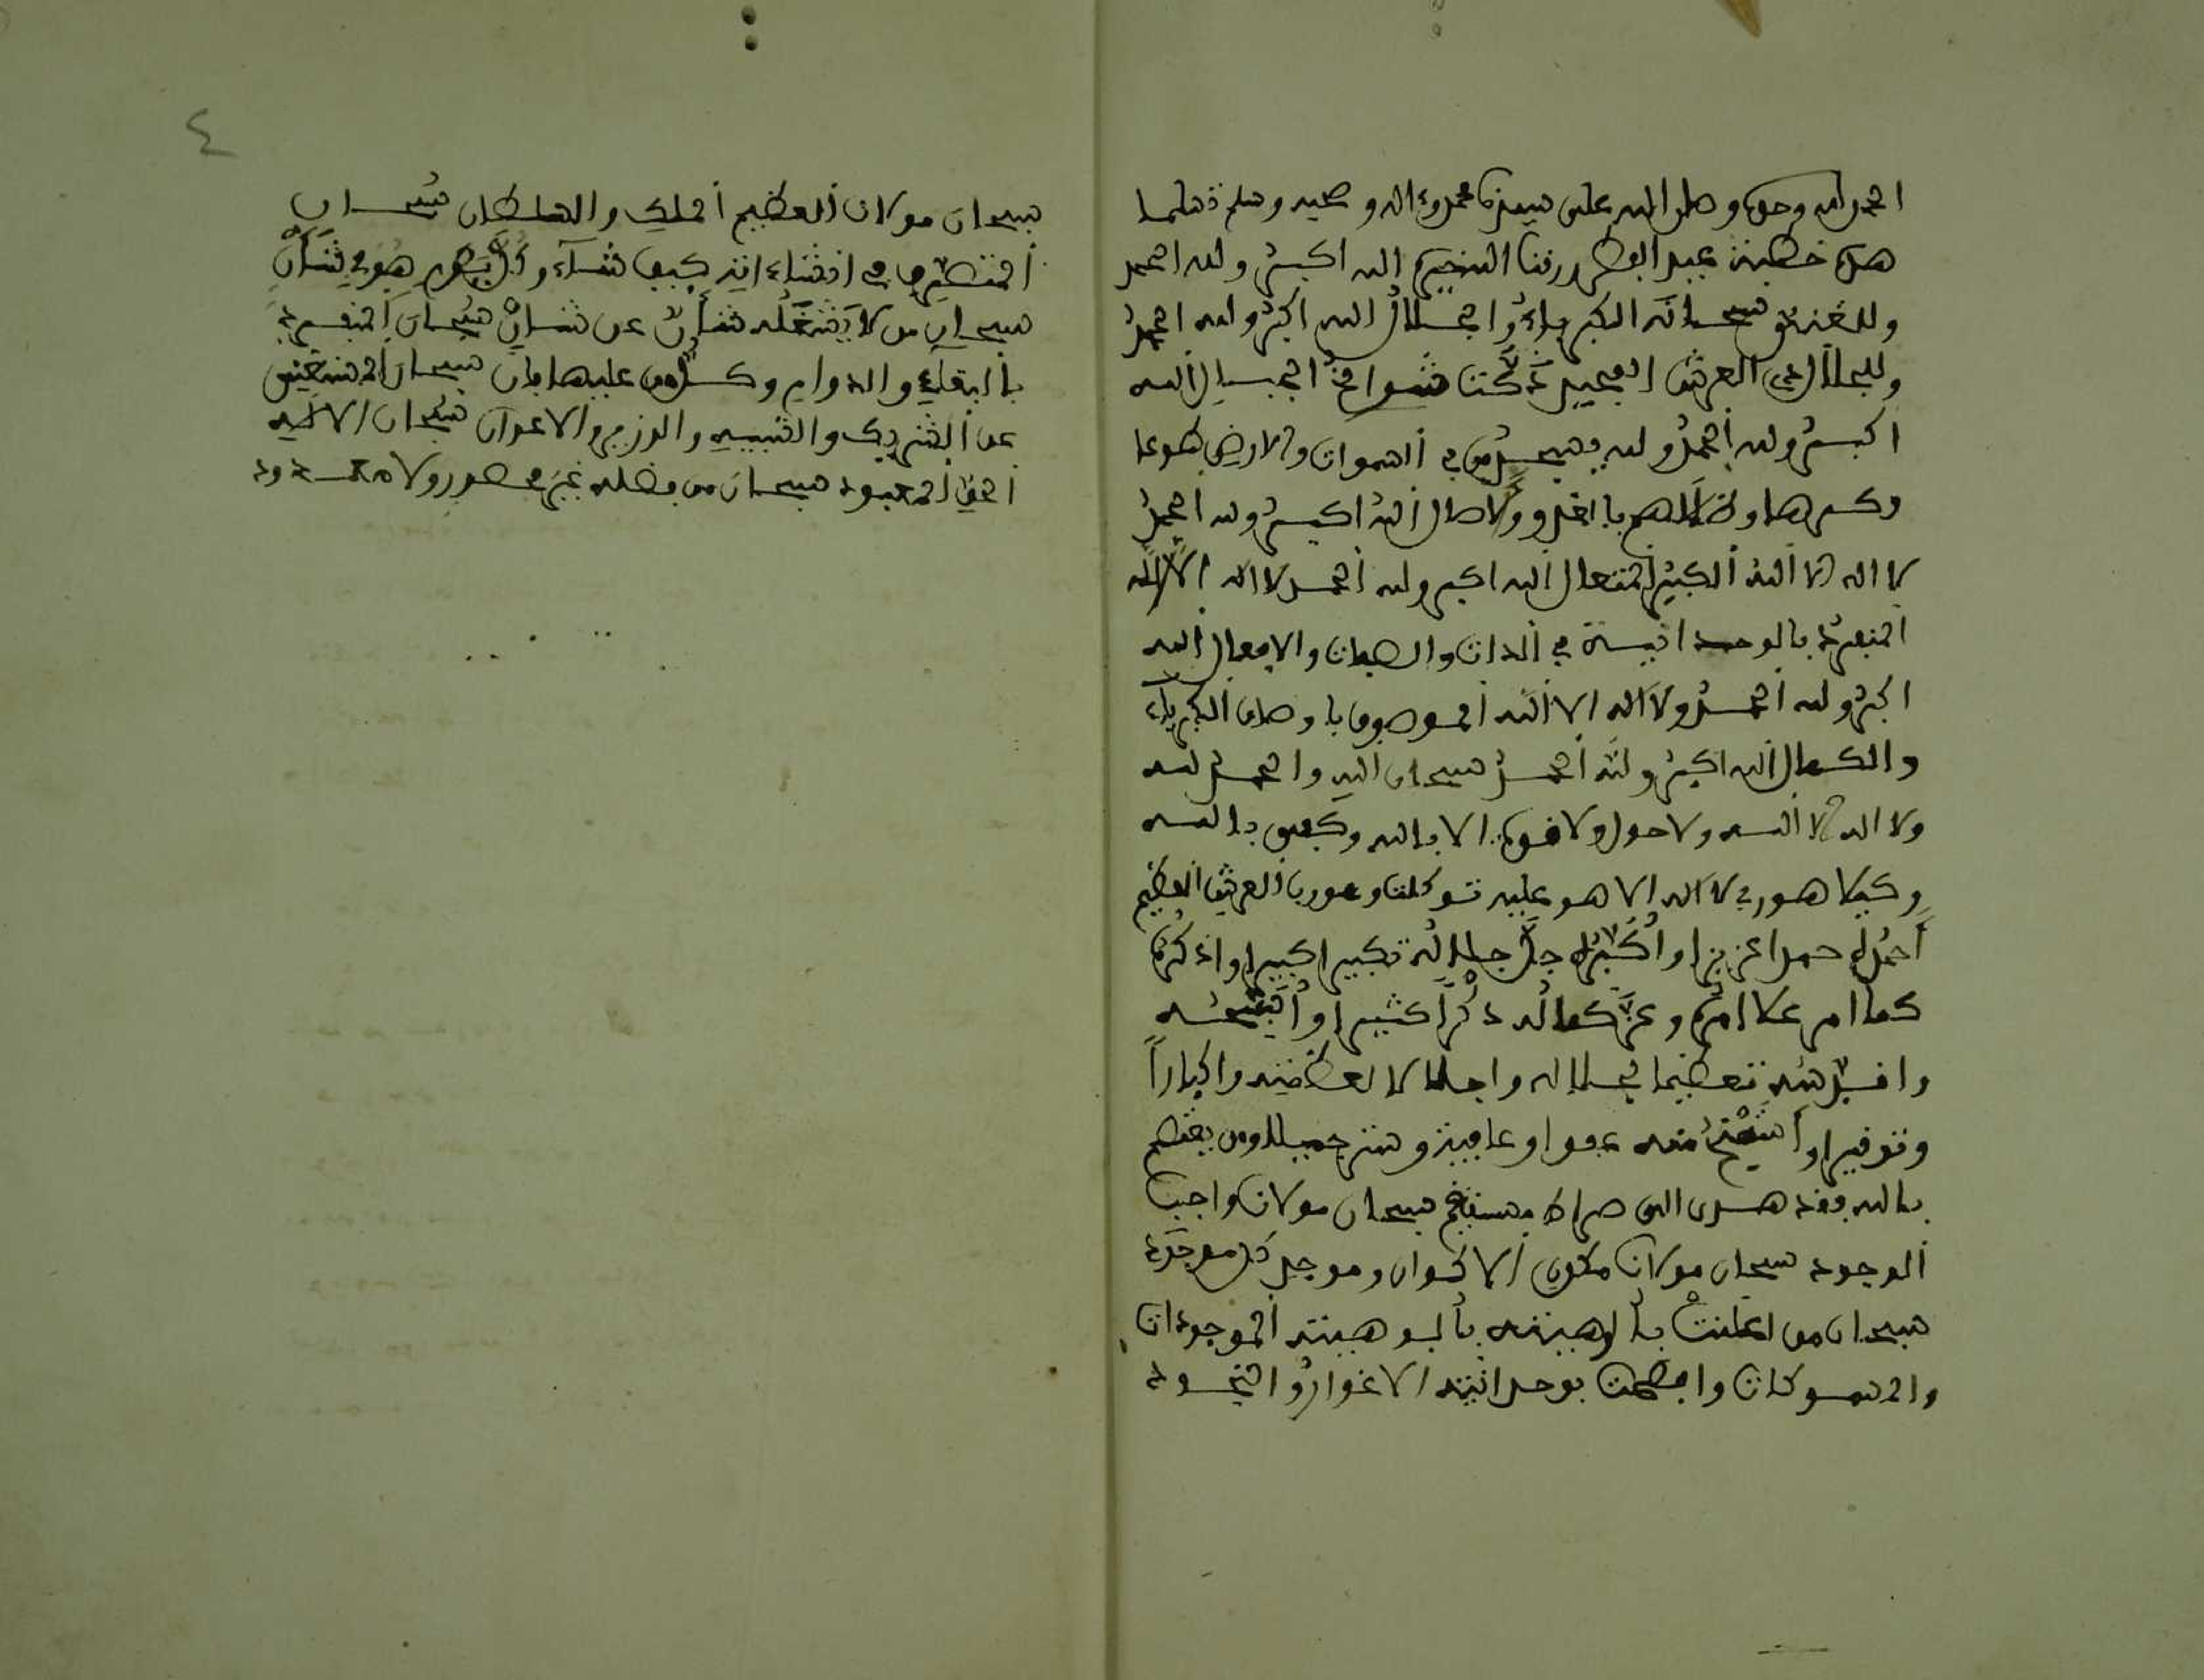 الحمد لله وحده وصلى الله على سيدنا محمد وءاله وصحبه وسلم تسليما
هذه خطبة عيد الفطر الله اكبر ولله الحمد
سبحانه الكبرياء والجلال الله اكبر ولله الحمد
ولجلال ذي العرش المجيد دكت شوامخ الجبال الله
اكبر ولله الحمد ولله يسجد من في السموات والارض طوعا
وكرها وظلالهم بالغدو والاصال الله اكبر ولله الحمد
لا اله الا الله الكبير المتعال الله اكبر ولله الحمد لا اله الا الله
المنفرد بالوحدانية في الذات والصفات والافعال الله
اكبر ولله الحمد ولا اله الا الله الموصوف باوصاف الكبرياء
والكمال الله اكبر ولله الحمد سبحان الله والحمد لله
ولا اله الا الله ولا حول ولا قوة الا بالله وكفى بالله
وكيلا هو ربي لا اله الا هو عليه توكلت وهو رب العرش العظيم
أحمده حمدا عزيزا وأكبره جل جلاله تكبيرا كبيرا واذكره
كما امر علا امره وعز كماله ذكرا كثيرا وأسبحه
واقدسه تعظيما لجلاله واجلالا لعظمته واكبارا
وتوقيرا وأستمنح منه عفوا وعافية وسترا جميلا ومن يعتصم
بالله فقد هدى الى صراط مستقيم سبحان مولانا واجب
الوجود سبحان مولانا مكون الاكوان وموجد كل موجود
سبحان من اعلنت بألوهيته الموجودات
والمسموكات وافصحت بوحدانيته الاغوار والنجود
سبحان مولانا العظيم الملك والسلطان سبحان
المتصرف في الاشياء كيف شاء وكل يوم هو في شأن
سبحان من لا يشغله شأن عن شان سبحان المنفرد
بالبقاء والدوام وكل من عليها فان سبحان المستغني
عن الشريك والشبيه والوزير والاعوان سبحان الالاه
الحق المعبود سبحان من فضله غير محصور ولا محدود
٤